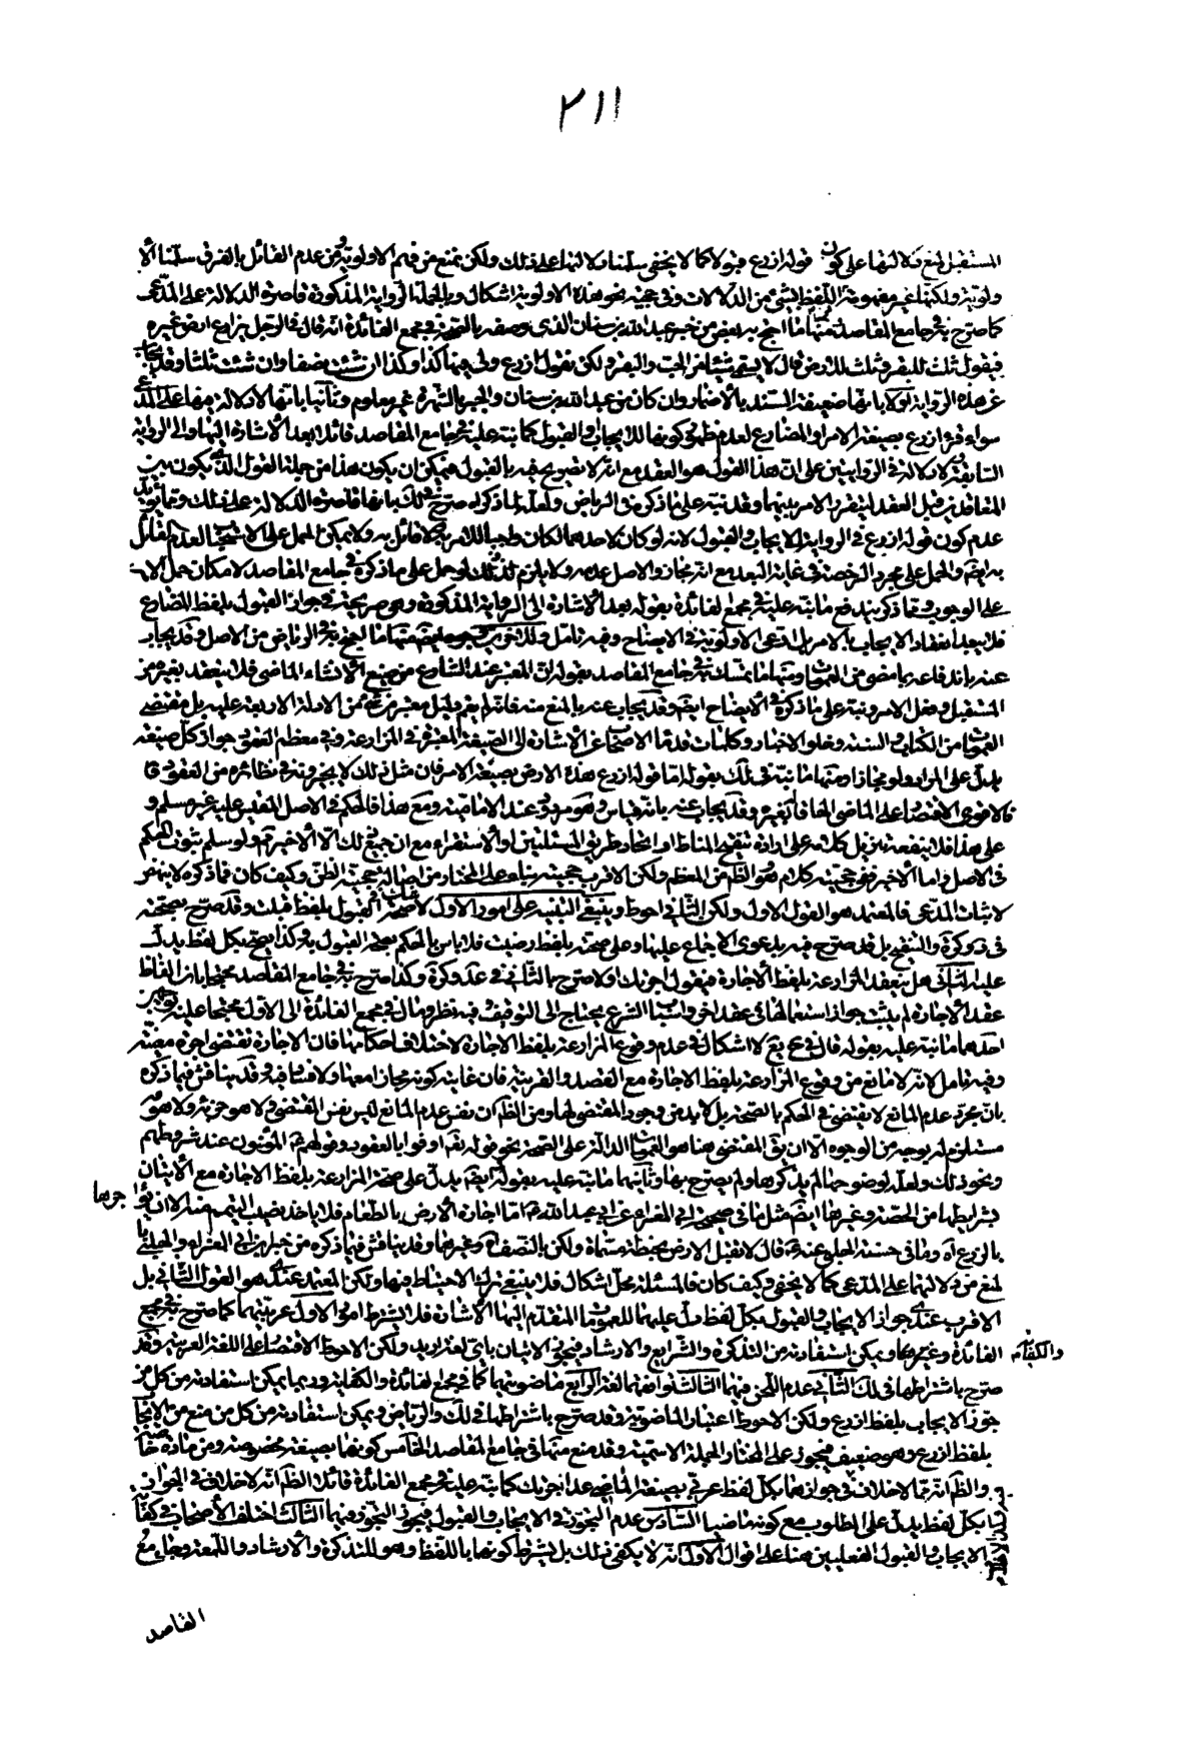 ٢١١
المستقبل لمنع دلالتها على كون قوله ازرع قبولا كما لا يخفى سلمنا دلالتها على ذلك ولكن نمنع من فهم الاولوية ومن عدم القائل بالفرق سلمنا الا
ولوية ولكنها غير مفهومة من اللفظ بشئ من الدلالات وفى حجية نحو هذه الاولوية اشكال وبالجملة الرواية المذكورة قاصرة الدلالة على المدعى
كما صرح به فى جامع المقاصد ومنها ما احتج به بعض من خبر عبد الله بن سنان الذى وصفه بالصحة فى مجمع الفائدة انه قال فى الرجل يزارع ارض غيره
فيقول ثلث للبقر وثلث للارض قال لا يسمى شيئا من الحب والبقر ولكن يقول ازرع ولى فيها كذا وكذا ان شئت نصفا وان شئت ثلثا وقد يجاب
عن هذه الرواية اولا بانها ضعيفة السند بالاضمار وان كان من عبد الله بن سنان والجبر بالشهرة غير معلوم وثانيا بانها لا دلالة فيها على المدعى
سواء قرء ازرع بصيغة الامر او المضارع لعدم ظهور كونها للايجاب والقبول كما نبه عليه فى جامع المقاصد قائلا بعد الاشارة اليها والى الرواية
السابقة لا دلالة فى الروايتين على ان هذا القول هو العقد مع انه لا تصريح فيه بالقبول فيمكن ان يكون هذا من جملة القول الذى يكون بين
المتعاقدين قبل العقد ليتقرر الامر بينهما وقد نبه على ما ذكره فى الرياض ولعله لما ذكره صرح فى لك بانها قاصرة الدلالة على ذلك ومما يؤيد
عدم كون قوله ازرع فى الرواية الايجاب والقبول لانه لو كان لاحدهما لكان واجبا للامر به ولا قائل به ولا يمكن الحمل على الاستحباب لعدم القائل
به ايضا والحمل على مجرد الرخصة فى غاية البعد مع انه مجاز والاصل عدمه ولا يلزم ذلك لو حمل على ما ذكره فى جامع المقاصد لامكان حمل الامر
على الوجوب وبما ذكر يندفع ما نبه عليه فى مجمع الفائدة بقوله بعد الاشارة الى الرواية المذكورة وهو صريحة فى جواز القبول بلفظ المضارع
فلا يبعد انعقاد الايجاب بالامر بل ادعى الاولوية فى الايضاح وفيه تامل ومنها ما احتج به فى الرياض من الاصل وقد يجاب
عنه باندفاعه بما مضى من العمومات ومنها ما تمسك به فى جامع المقاصد بقوله لان المعتبر عند الشارع من صيغ الانشاء الماضى فلا ينعقد بغيره من
المستقبل وفعل الامر ونبه على ما ذكره فى الايضاح ايضا وقد يجاب عنه بالمنع منه فانه لم يقم دليل معتبر شرعى من الادلة الاربعة عليه بل مقتضى
العمومات من الكتاب والسنة وخلو الاخبار وكلمات قدماء الاصحاب عن الاشارة الى الصيغة المعتبرة فى المزارعة وفى معظم العقود جواز كل صيغة
يدل على المراد ولو مجازا ومنها ما نبه فى لك بقوله اما قوله ازرع هذه الارض بصيغة الامر فان مثل ذلك لا يجيزونه فى نظائره من العقود فا
فالاقوى الاقتصار على الماضى الحاقا بغيره وقد يجاب عنه بانه قياس وهو مردود عند الامامية ومع هذا فالحكم فى الاصل المقيس عليه غير مسلم و
على هذا فلا ينفعه تنزيل كلامه على ارادة تنقيح المناط او اتحاد طريق المسئلتين او الاستقراء مع ان جميع ذلك الا الاخير ولو سلم ثبوت الحكم
فى الاصل واما الاخير ففى حجيته كلام هو الظاهر من المعظم ولكن الاقرب حجيته بناء على المختار من اصالة حجية الظن وكيف كان فما ذكره لا ينهض
لاثبات المدعى فالمعتمد هو القول الاول ولكن الثانى احوط وينبغى التنبيه على امور الاول لا شبهة القبول بلفظ قبلت وقد صرح بصحته
فى عد وكرة والتنقيح بل قد صرح فيه بدعوى الاجماع عليها وعلى صحته بلفظ رضيت فلا باس بالحكم بصحة القبول به وكذا يصح بكل لفظ يدل
عليه الثانى هل ينعقد المزارعة بلفظ الاجارة فيقول اجرتك اولا صرح بالثانى فى عد وكرة وكذا صرح به فى جامع المقاصد محتجا بان الفاظ
عقد الاجارة لم يثبت جواز استعمالها فى عقد اخر واسباب الشرع يحتاج الى التوقيف وفيه نظر ومال فى مجمع الفائدة الى الاول محتجا عليه بوجهين
احدهما ما نبه عليه بقوله قال فى يع لا اشكال فى عدم وقوع المزارعة بلفظ الاجارة لاختلاف احكامها فان الاجارة تقتضى اجرة معينة
وفيه تامل لانه لا مانع من وقوع المزارعة بلفظ الاجارة مع القصد والقرينة فان غايته كونه مجازا معها ولا فساد فيه وقد يناقش فيما ذكره
بان مجرد عدم المانع لا يقتضى فى الحكم بالصحة بل لا بد من وجود المقتضى لها ومن الظاهر ان نفس عدم المانع ليس نفس المقتضى ولا هو جزئه ولا هو
مستلزم له بوجه من الوجوه الا ان يق المقتضى هنا هو العمومات الدالة على الصحة نحو قوله تعالى اوفوا بالعقود وقولهم المؤمنون عند شروطهم
ونحو ذلك ولعله لوضوحها لم يذكرها ولم يصرح بها وثانيهما ما نبه عليه بقوله ايضا يدل على صحة المزارعة بلفظ الاجارة مع الاتيان
بشرايطها من الحصة وغيرها ايضا مثل ما فى صحيحة ابى المغراء عن ابى عبد الله اما اجارة الارض بالطعام فلا ياخذ نصيب اليتيم منه الا ان يؤاجرها
بالربع اه وما فى حسنة الحلبى عنه قال لا تقبل الارض بحنطة مسماة ولكن بالنصف وغيرها وقد يناقش فيما ذكره من خبر ابى المغراء والحلبى با
لمنع من دلالتهما على المدعى كما لا يخفى وكيف كان فالمسئلة محل اشكال فلا ينبغى ترك الاحتياط فيها ولكن المعتمد عندى هو القول الثانى بل
الاقرب عندى جواز الايجاب والقبول بكل لفظ دل عليهما للعمومات المتقدم اليها الاشارة فلا يشترط امور الاول عربيتهما كما صرح به فى مجمع
الفائدة وغيرهما ويمكن استفادته من التذكرة والشرايع والارشاد فيجوز الاتيان باى لغة اريد ولكن الاحوط الاقتصار على اللغة العربية وقد
والكفاية
صرح باشتراطها فى لك الثانى عدم اللحن فيهما الثالث توافقهما لغة الرابع ماضويتهما كما فى مجمع الفائدة والكفاية وربما يمكن استفادته من كل من
جوز الايجاب بلفظ ازرع ولكن الاحوط اعتبار الماضوية وقد صرح باشتراطها فى لك والرياض ويمكن استفادته من كل من منع من الايجاب
بلفظ ازرع وهو ضعيف فيجوز على المختار الجملة الاسمية وقد منع منها فى جامع المقاصد الخامس كونهما بصيغة مخصوصة ومن مادة خاصة
والظاهر انه مما لا خلاف فى جوازهما بكل لفظ عرفى بصيغة الماضى عدا اجرتك كما نبه عليه فى مجمع الفائدة قائلا الظاهر انه لا خلاف فى الجواز
بكل لفظ يدل على المطلوب مع كونه ماضيا السادس عدم التجوز فى الايجاب والقبول فيجوز التجوز فيهما الثالث اختلف الاصحاب فى كفاية
الايجاب والقبول الفعليين هنا على اقوال الاول انه لا يكفى ذلك بل يشترط كونهما باللفظ وهو للتذكرة والارشاد واللمعة وجامع
القاصد